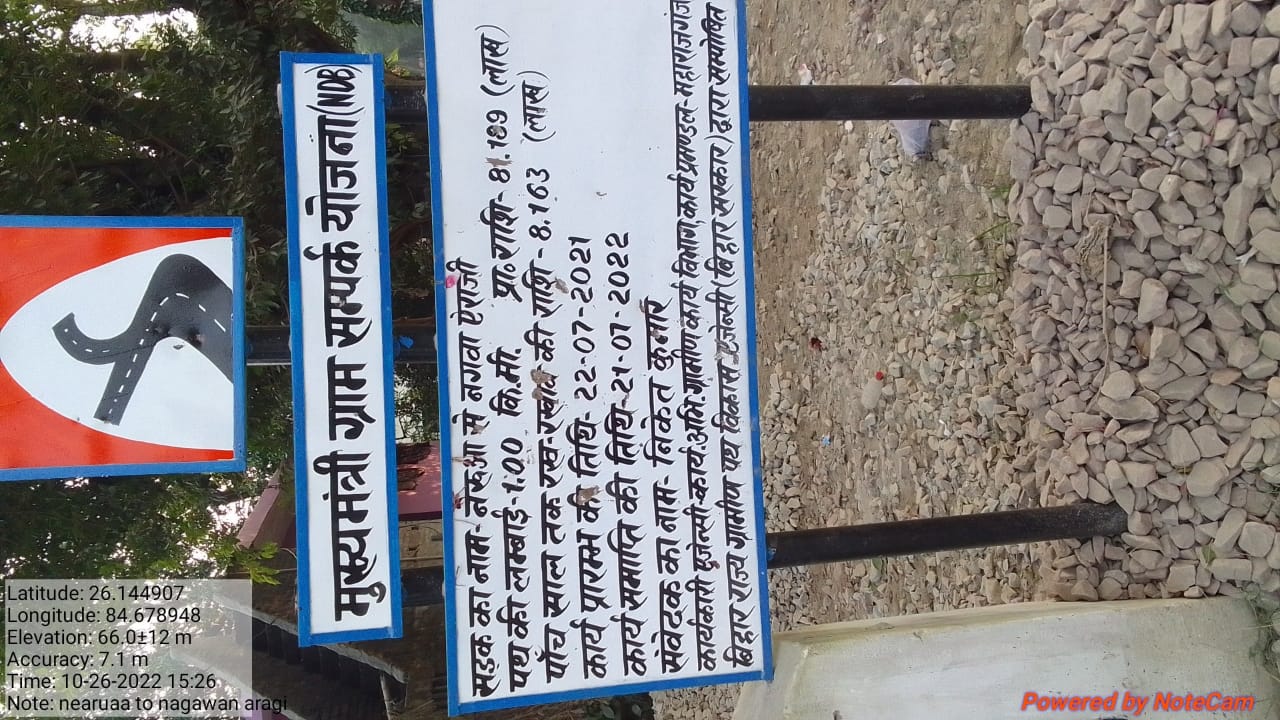 मुख्यमंत्री ग्राम सम्पर्क योजना(NDB)
सड़क का नाम-नेरूआ से नगवा ऐराजी
पथ की लम्बाई-1.00 कि.मी. प्रा०राशि-81.189 (लाख)
पाँच साल तक रख-रखाव की राशि-8.163 (लाख)
कार्य प्रारम्भ की तिथि-22-07-2021
कार्य समाप्ति की तिथि-21-07-2022
संवेदक का नाम- निकेत कुमार
कार्यकारी एजेन्सी-कार्य.अभि.ग्रामीण कार्य विभाग,कार्य प्रमण्डल-
बिहार राज्य ग्रामीण पथ विकास एजेन्सी(बिहार सरकार)द्वारा सम्पोषित
Latitude: 26.144907
Longitude: 84.678948
Elevation: 66.0±12 m
Accuracy: 7.1 m
Time: 10-26-2022 15:26
Note: nearuaa to nagawan aragi
Powered by NoteCam